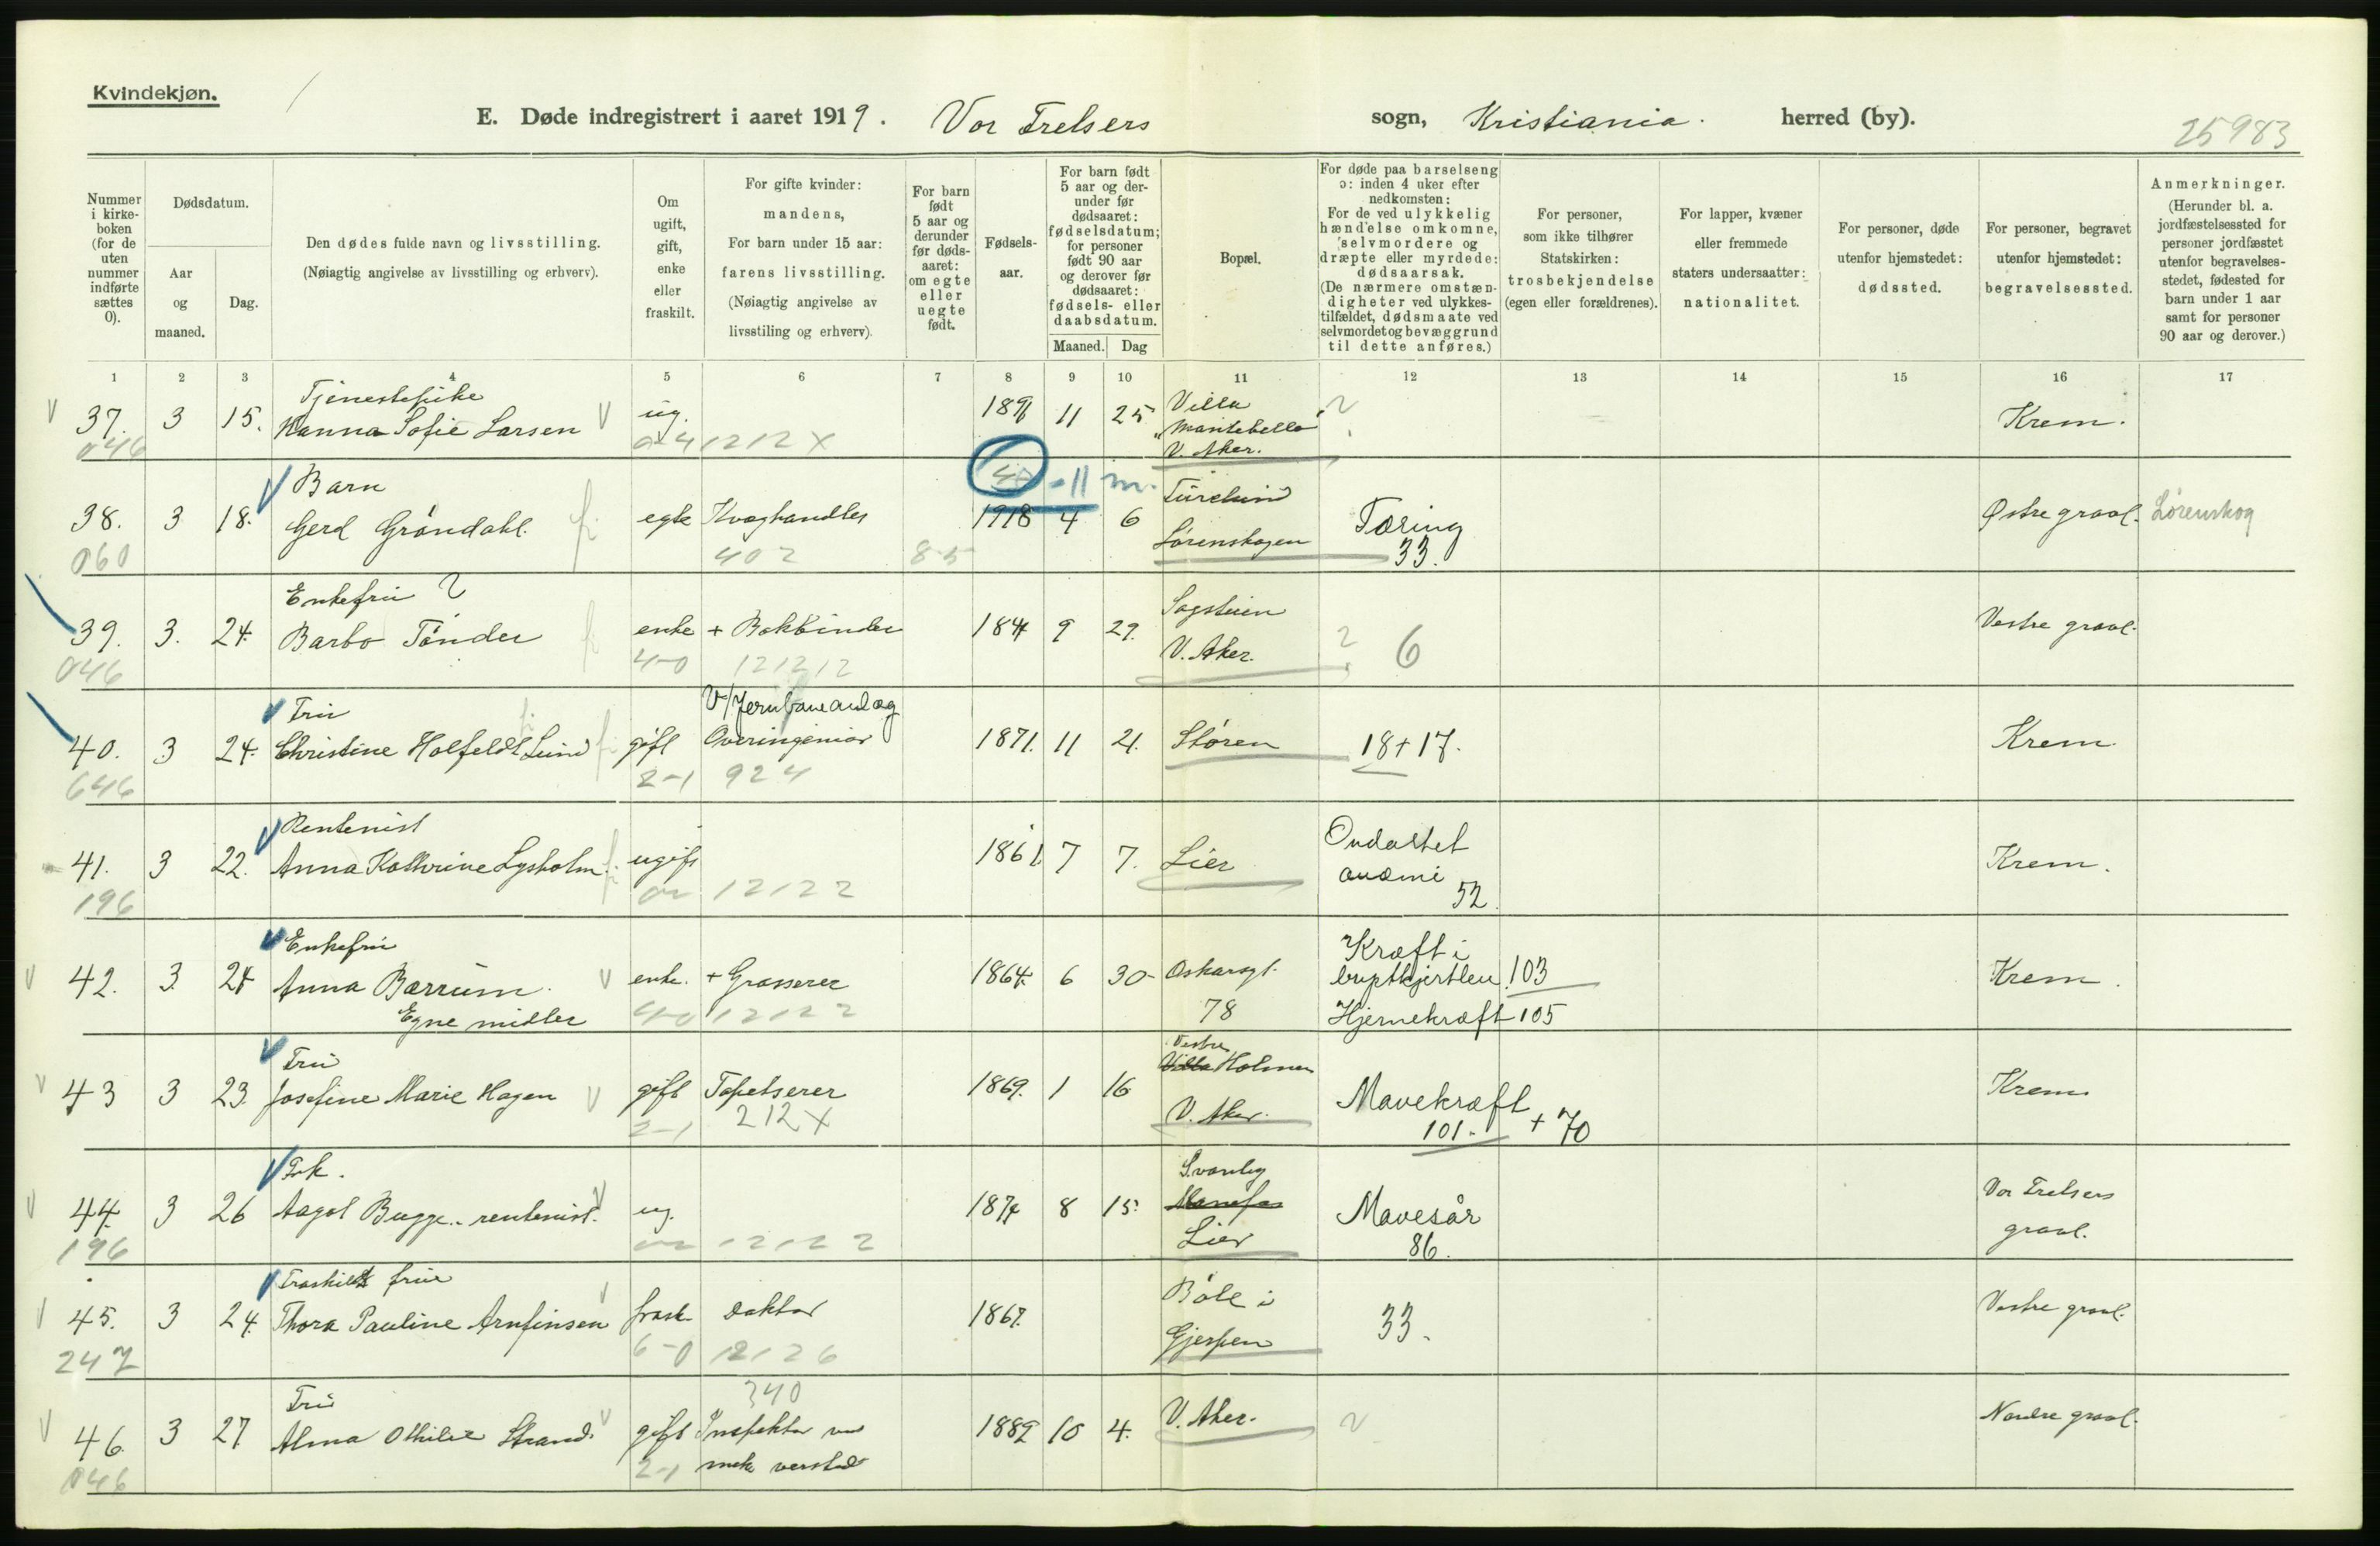 Kvindekjøn.
E. Døde indregistrert i aaret 1919. Vor Frelsers sogn, Kristiania. herred (by).
25983
Nummer i kirke-boken (for de uten nummer indførte sættes 0).
Dødsdatum.
Aar og maaned.
Dag.
Den dødes fulde navn og livsstilling.
(Nøiagtig angivelse av livsstilling og erhverv).
Om ugift, gift, enke eller fraskilt.
For gifte kvinder: mandens,
For barn under 15 aar: farens livsstilling.
(Nøiagtig angivelse av livsstiling og erhverv)
For barn født 5 aar og derunder før døds-aaret: om egte eller uegte født.
Fødsels-aar.
For barn født 5 aar og der-under før dødsaaret: fødselsdatum; for personer født 90 aar og derover før dødsaaret: fødsels- eller daabsdatum.
Maaned. Dag
Bopæl.
For døde paa barselseng ɔ: inden 4 uker efter nedkomsten:
For de ved ulykkelig hændelse omkomne, selvmordere og dræpte eller myrdede: dødsaarsak.
(De nærmere omstæn-digheter ved ulykkes-tilfældet, dødsmaate ved selvmordet og bevæggrund til dette anføres.)
For personer, som ikke tilhører Statskirken: trosbekjendelse (egen eller forældrenes).
For lapper, kvæner eller fremmede staters undersaatter: nationalitet.
For personer, døde utenfor hjemstedet: dødssted.
For personer, begravet utenfor hjemstedet: begravelsessted.
Anmerkninger.
(Herunder bl. a. jordfæstelsessted for personer jordfæstet utenfor begravelses-stedet, fødested for barn under 1 aar samt for personer 90 aar og derover.)
1 2 3 4 5 6 7 8 9 10 11 12 13 14 15 16 17
Tjenestepike
37. 3 15. Hanna Sofie Larsen ug. 11 25 Villa "Montebello" V. Aker. Krem.
046 1212X
Barn
11 m.
38. 3 18. Gerd Gröndahl. egte Kvæghandler 1918 4 6 Lörenskogen Tæring 33. Østre gravl. Lörenskog
060 402 8-5
Enkefru
39. 3. 24. Barbo Tönder enke + Bokbinder 184 9 29. Sogsteien V. Aker. 6 Vestre gravl.
046 4-0 121212
Fru
V/Jernbaneanlæg
40. 3 24. Christine Holfeldt Lund gift Overingeniør 1871. 11 21. Stören 18+17. Krem.
646 2-1 924
Rentenist
41. 3 22. Anna Kathrine Lysholm. ugift 1861. 7 7. Lier Ondartet anæmi 52. Krem.
196 12122
Enkefru
42. 3 24 Anna Bærrum. enke. + Grosserer 1864. 6 30 Oskarsgt. 78 Kræft i brystkjertlen 103 Krem.
Egne midler 4-0 12122 Hjernekræft 105
Fru
43 3 23. Josefine Marie Hagen gift Tapetserer 1869. 1 16 Vestre Holmen V. Aker. Mavekræft 101. + 70 Krem.
2-1 212X
Frk.
44. 3 26 Aagot Bugge. rentenist. ug. 1874 8 15. Svanlig Lier Mavesår 86. Vor Frelsers gravl.
196 12122
Fraskilt frue
45. 3 24. Thora Pauline Arnfinsen frask. Doktor 1867. Böle i Gjerpen 33. Vestre gravl.
247 6-0 12126
Fru
340
46. 3 27 Alma Othilie Strand. gift Inspektør ved mek versted 1882 10 4. V. Aker. Nordre gravl.
046 2-1